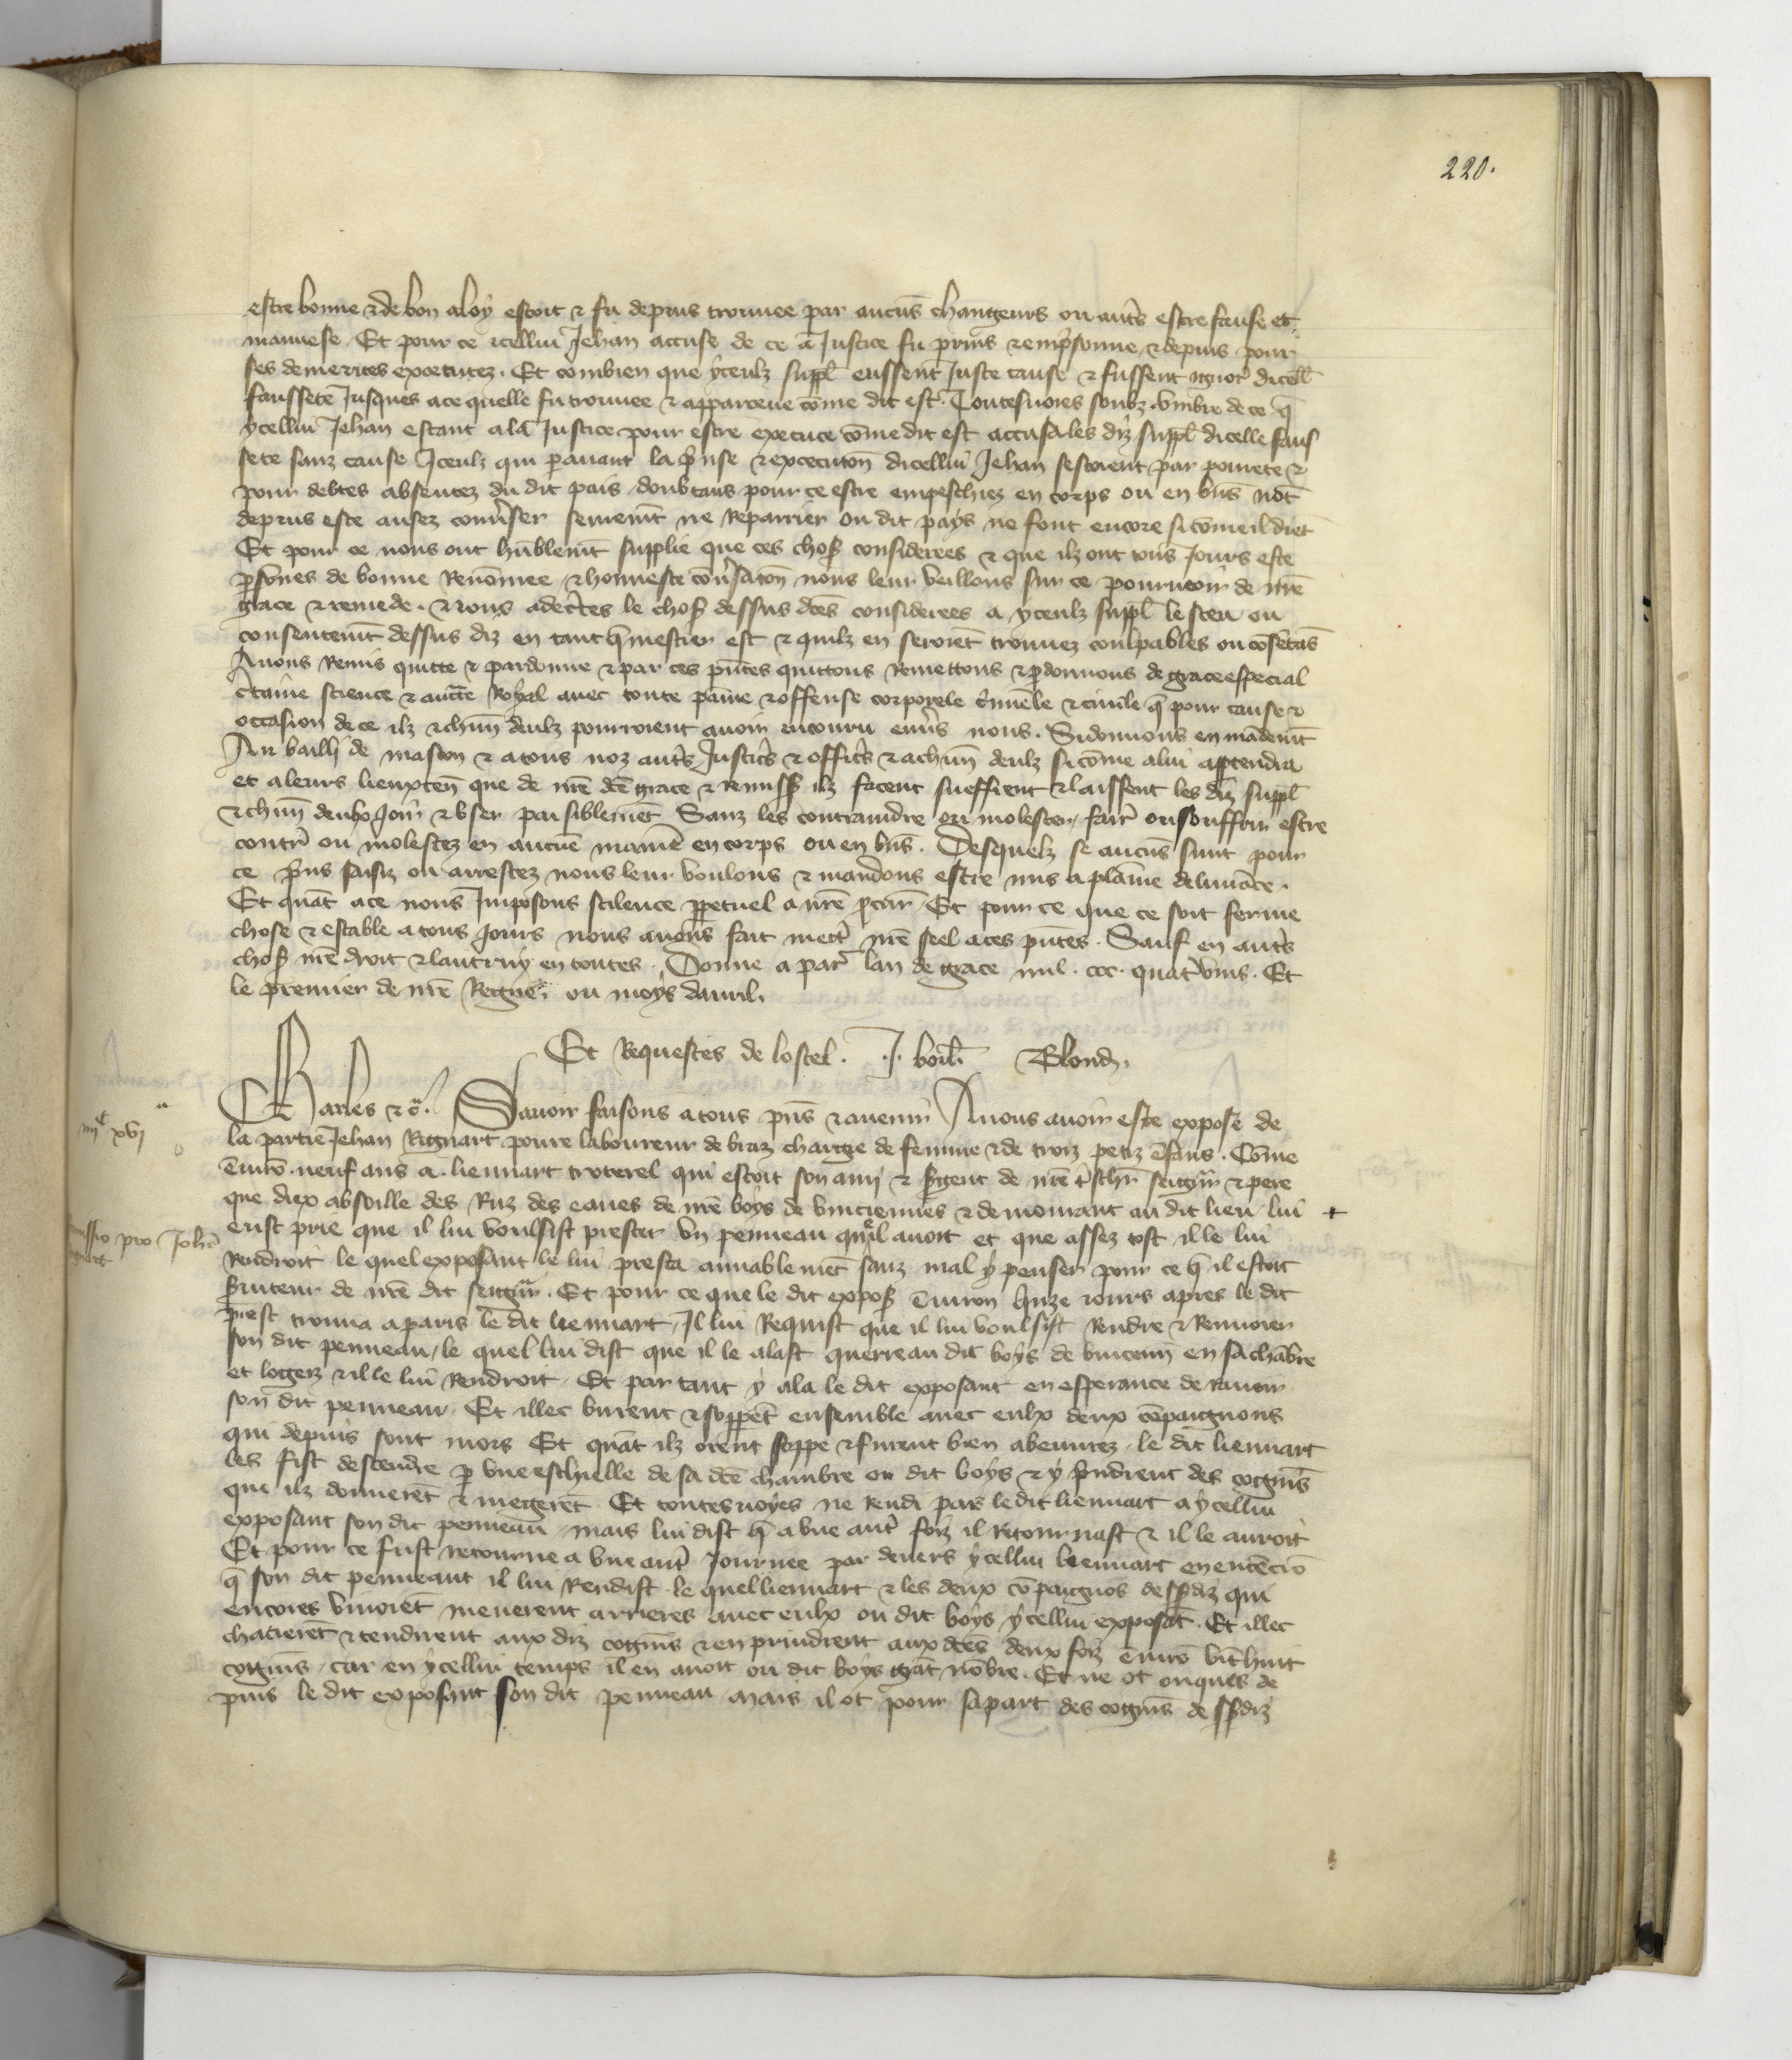 220.
estre bonne & de bon aloy estoit & fu depuis trouvee par aucūs changeurs ou aut̄s estre fause et
mauvese. Et pour ce icellui Jehan accuse de ce a Justice fu prins & emp̄sonne & depuis pour
ses demerites executez. Et combien que yceulz suppl̄ eussent Juste cause & fussent ignor̄ dicell̄
fausseté Jusques a ce quelle fu trouvee & apparceue cōme dit est. Toutesvoies soubz umbre de ce q̄
ycellui Jehan estant a la Justice pour estre execute cōme dit est accusa les diz suppl̄ dicelle faus
sete sanz cause Iceulz qui p̄avant la p̄nse & execucion̄ dicellui Jehan sestoient par povrete &
pour debtes absentez du dit pais doubtans pour ce estre empeschiez en corps ou en biēs nōt
depuis este ausez conv̄ser seuremt̄ ne Reparrier ou dit pays ne font encore si cōme il dient
Et pour ce nous ont hūblemt̄ supplie que ces chos̄ considerees & que ilz ont tous Jours este
p̄sones de bonne Renōmee & honneste conv̄sation̄ nous leur vueillons sur ce pourveoir de nr̄e
grace & remede. & nous adec̄tes le chos̄ dessus dc̄es considerees a yceulz suppl̄ le sceu ou
consentemt̄ dessus diz en tant q̄ mestier est & quilz en seroiēt trouvez coulpables ou cōsētās
Avons Remis quitte & pardonne & par ces pn̄tes quittons Remettons & p̄donnons de grace especial
c̄taine science & auct̄e Royal avec toute paine & offense corporele c̄minele & civile q̄ pour cause &
occasion de ce ilz & chūn deulz pourroient avoir encouru env̄s nous. Si donnons en mādemt̄
Au bailli de mascon & a tous noz aut̄s Justic̄s & offic̄s & a chūn deulz si cōme a lui appendra
et a leurs lieuxten̄ que de nr̄e dc̄e grace & Remiss̄ ilz facent sueffrent & laissent les diz suppl̄
& chūn deulx Joir & user paisiblemēt Sanz les contraindre ou molester faire ou souffrir estre
contr̄ ou molestez en aucūe maniē en corps ou en biēs. Desquelz se aucūs sunt pour
ce p̄ns saisiz ou arrestez nous leur voulons & mandons estre mis a plaine delivrāce.
Et quāt a ce nous Imposons scilence p̄petuel a nr̄e p̄cur̄ Et pour ce que ce soit ferme
chose & estable a tous Jours nous avons fait mectr̄ nr̄e seel a ces pn̄tes. Sauf en aut̄s
chos̄ nr̄e droit & lautruy en toutes. Donne a par̄ lan de grace mil. ccc. quat̄ vins. Et
le premier de nr̄e Regne. ou moys davril.
Es Requestes de lostel. J. boil̄. Blond̄.
Charles &c̄. Savoir faisons a tous pn̄s & avenir A nous avoir este expose de
la partie Jehan Rignart povre laboureur de braz chargie de femme & de troiz petiz ēfans. Cōme
ēviro. neuf ans a. Liennart troterel qui estoit son amy & s̄gent de nr̄e t̄sch̄r seigñr & pere
que diex absoille des Ruz des eaues de nr̄e boys de vinciennes & demourant au dit lieu lui +
eust prie que il lui voulsist prester un penneau quil avoit et que assez tost il le lui
Rendroit le quel exposant le lui presta amiablemēt sanz mal y penser pour ce q̄ il estoit
s̄viteur de nr̄e dit seigñr. Et pour ce que le dit expos̄ ēviron quze Jours apres le dit
prest trouva a paris le dit lienart, Il lui Requist que il lui voulsist Rendre & Renvoier
son dit penneau, le quel lui dist que il le alast querre au dit boys de vincenn̄ en sa chābre
et logeiz & il le lui Rendroit. Et par tant y ala le dit exposant en esperance de ravoir
son dit penneau. Et illec burent & soppēt ensemble avec eulx deux cōpaignons
qui depuis sont mors Et quāt ilz orent soppe & furent bien abevrez le dit lienart
les fist descendre p̄ une eschielle de sa dc̄e chambre ou dit boys & y p̄ndrent des cogn̄s
que ilz donnerēt & megerēt Et toutesvoyes ne rendi pas le dit lienart a ycellui
exposant son dit penneau mais lui dist q̄ a une aut̄ foiz il Retournast & il le auroit
Et pour ce fust retourne a une aut̄ Journee par devers ycellui lienart en entēcio
q̄ son dit penneaut il lui Rendist. le quel lienart & les deux cōpaignōs dess̄diz qui
encores vivoiēt menerent arrieres avec eulx ou dit boys ycellui exposāt. Et illec
chacierēt & tendirent aux diz cogn̄s & en prindrent aux dc̄es deux foiz ēviro vīthuit
cogn̄s, car en ycellui temps il en avoit ou dit boys grāt nōbre. Et ne ot onques de
puis le dit exposant son dit penneau mais il ot pour sa part des cogn̄s dess̄diz
iiiᶜ xvj
missio pro Joh̄e
gnart